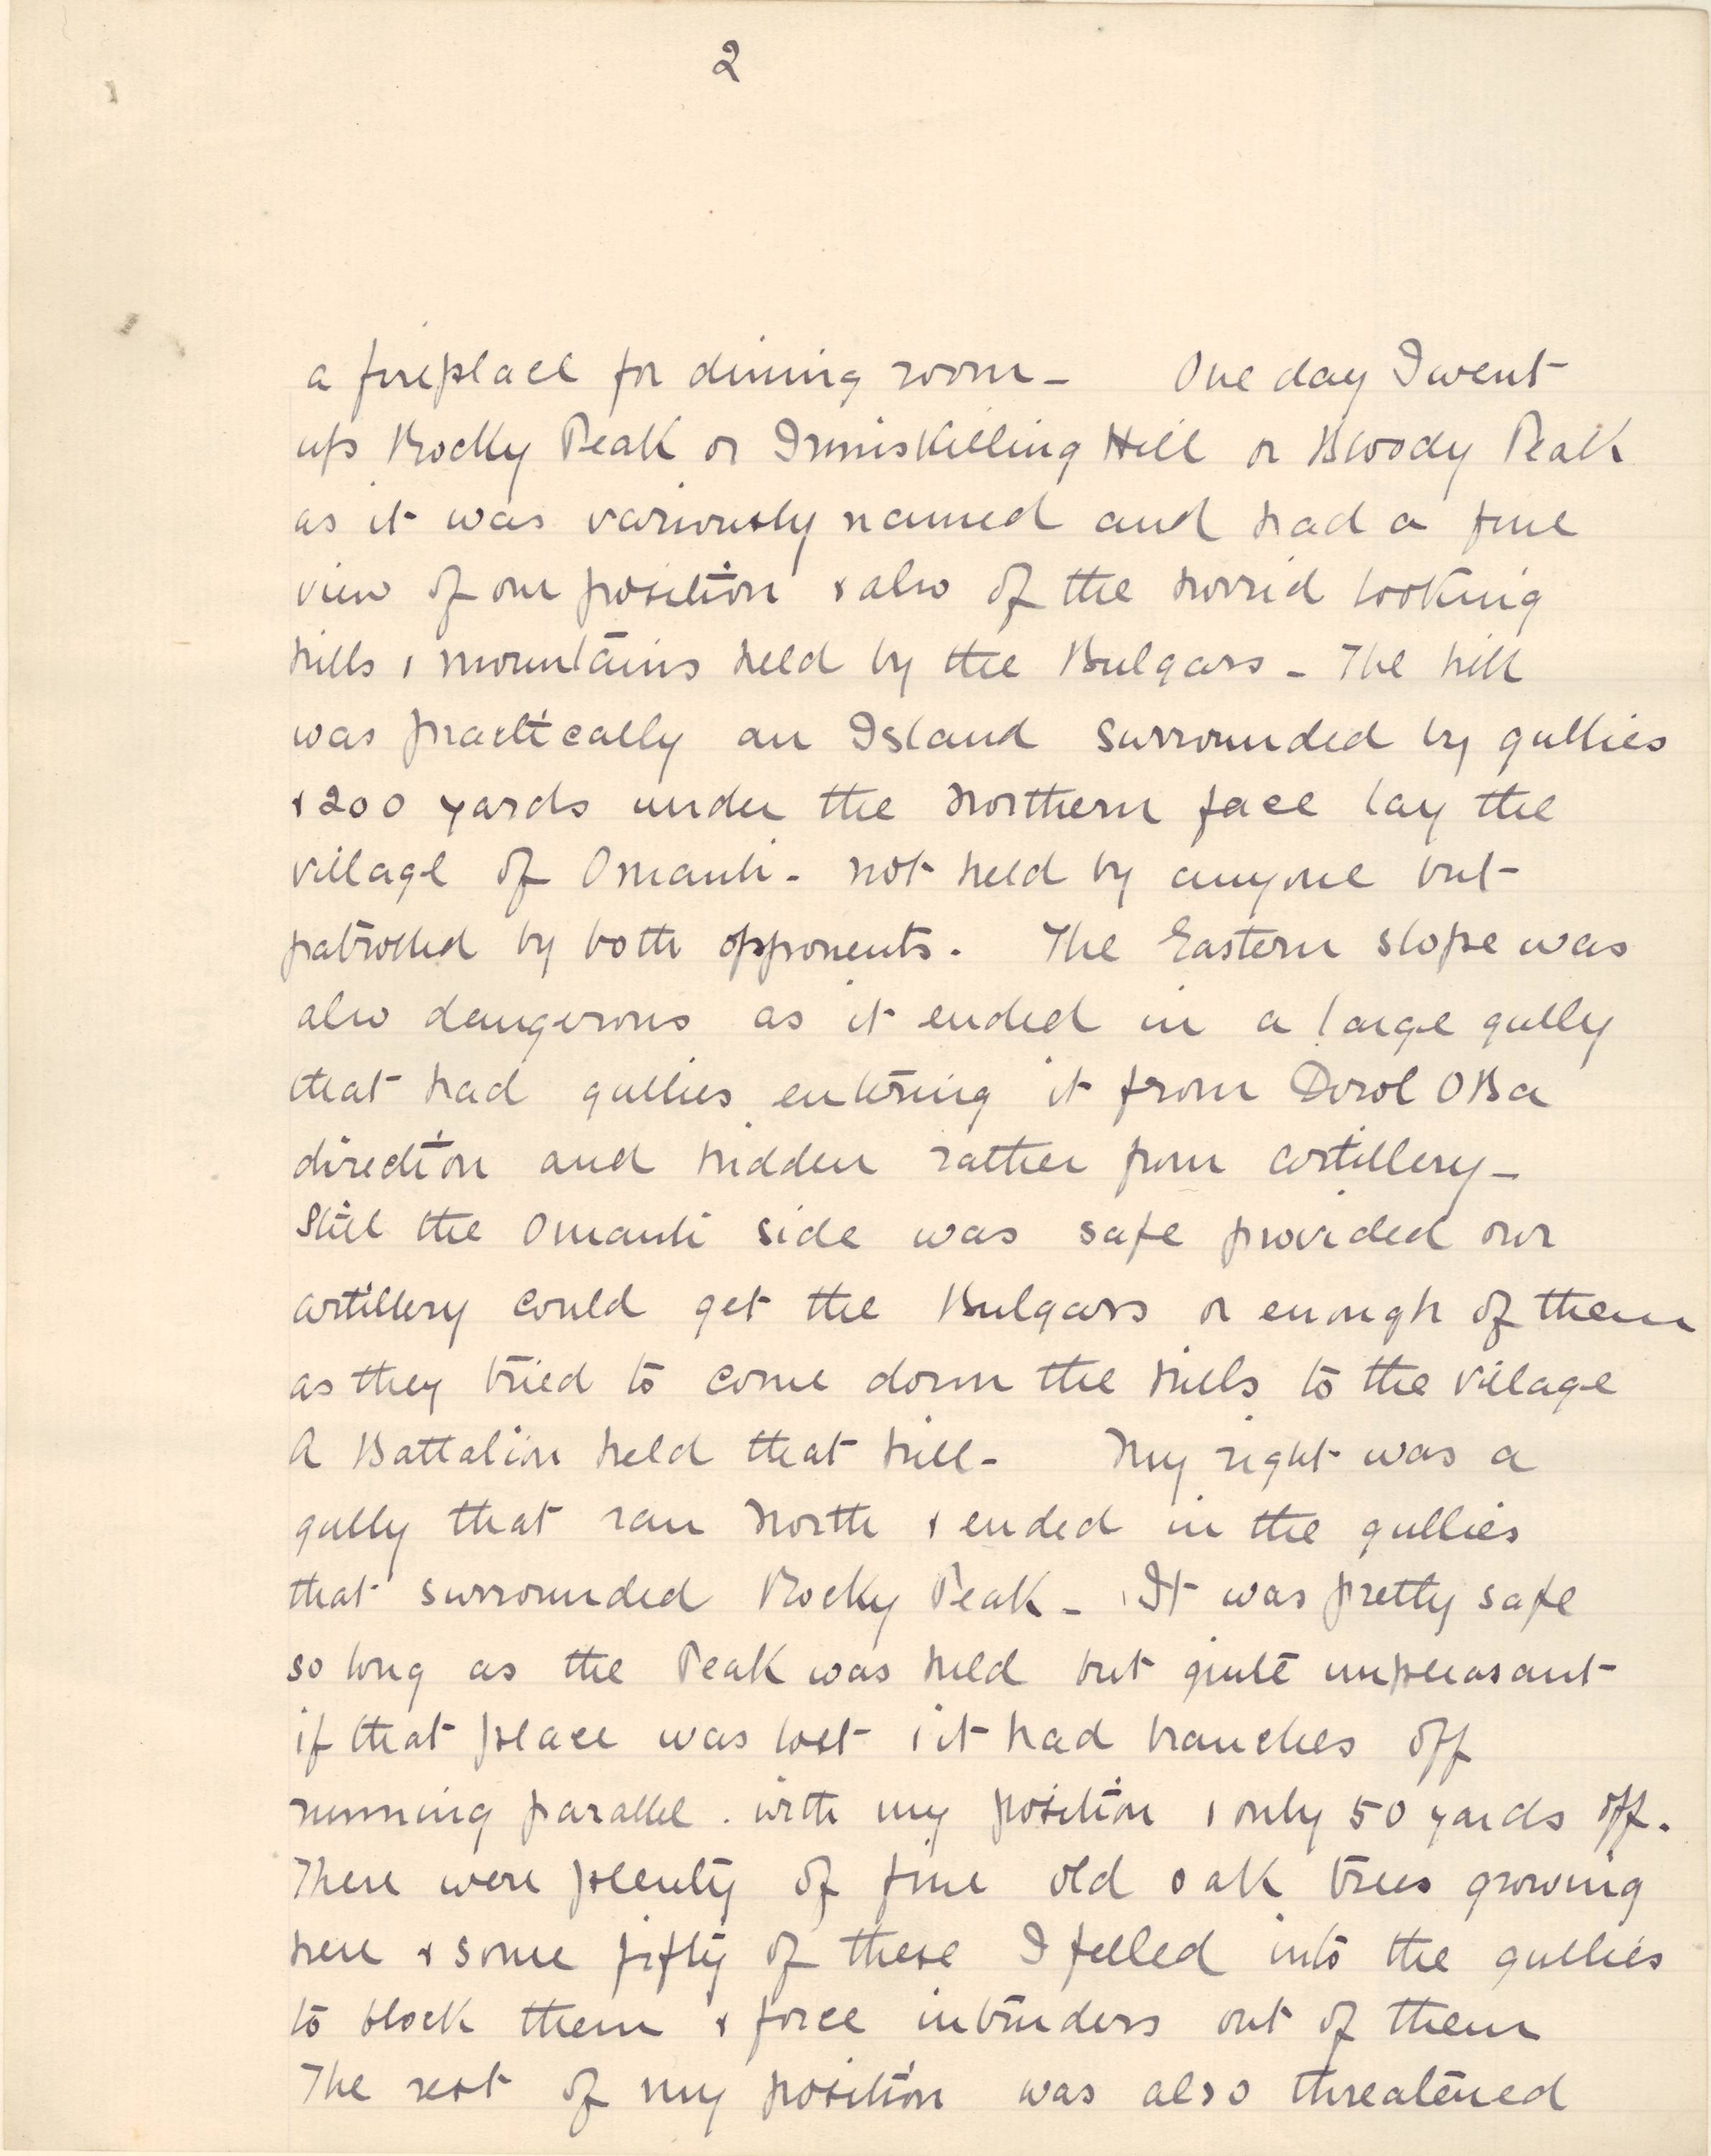 2
a fireplace for dining room - One day I went
up Rocky Peak or Inniskilling Hill or Bloody Peak
as it was variously named and had a fine
view of our position & also of the horrid looking
hills & mountains held by the Bulgars - The hill
was practically an Island surrounded by gullies
& 200 yards under the Northern face lay the
village of Omanli - not held by anyone but
patrolled by both opponents. The Eastern slope was
also dangerous as it ended in a large gully
that had gullies entering it from Dorol OBa
direction and hidden rather from artillery -
Still the Omanli side was safe provided our
artillery could get the Bulgars or enough of them
as they tried to come down the hills to the village
A Battalion held that hill - My right was a
gully that ran North & ended in the gullies
that surrounded Rocky Peak - It was pretty safe
so long as the Peak was held but quite unpleasant
if that place was lost & it had branches off
running parallel . with my position & only 50 yards off.
There were plenty of fine old oak trees growing
here & some fifty of these I felled into the gullies
to block them & force intruders out of them
The rest of my position was also threatened